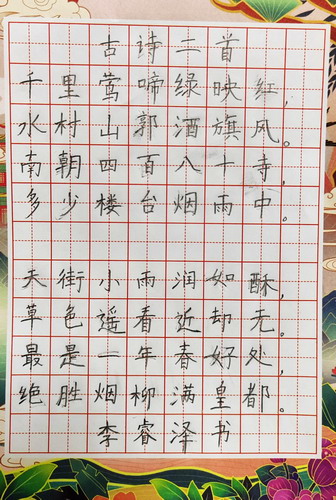 古诗二首
千里莺啼绿映红，
水村山郭酒旗风。
南朝四百八十寺，
多少楼台烟雨中。
天街小雨润如酥，
草色遥看近却无。
最是一年春好处，
绝胜烟柳满皇都。
李睿泽书